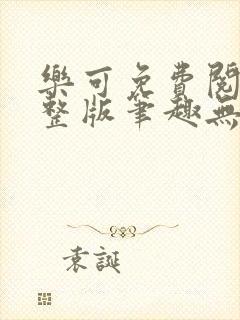 樂可免費閱
整版筆趣無
袁誕